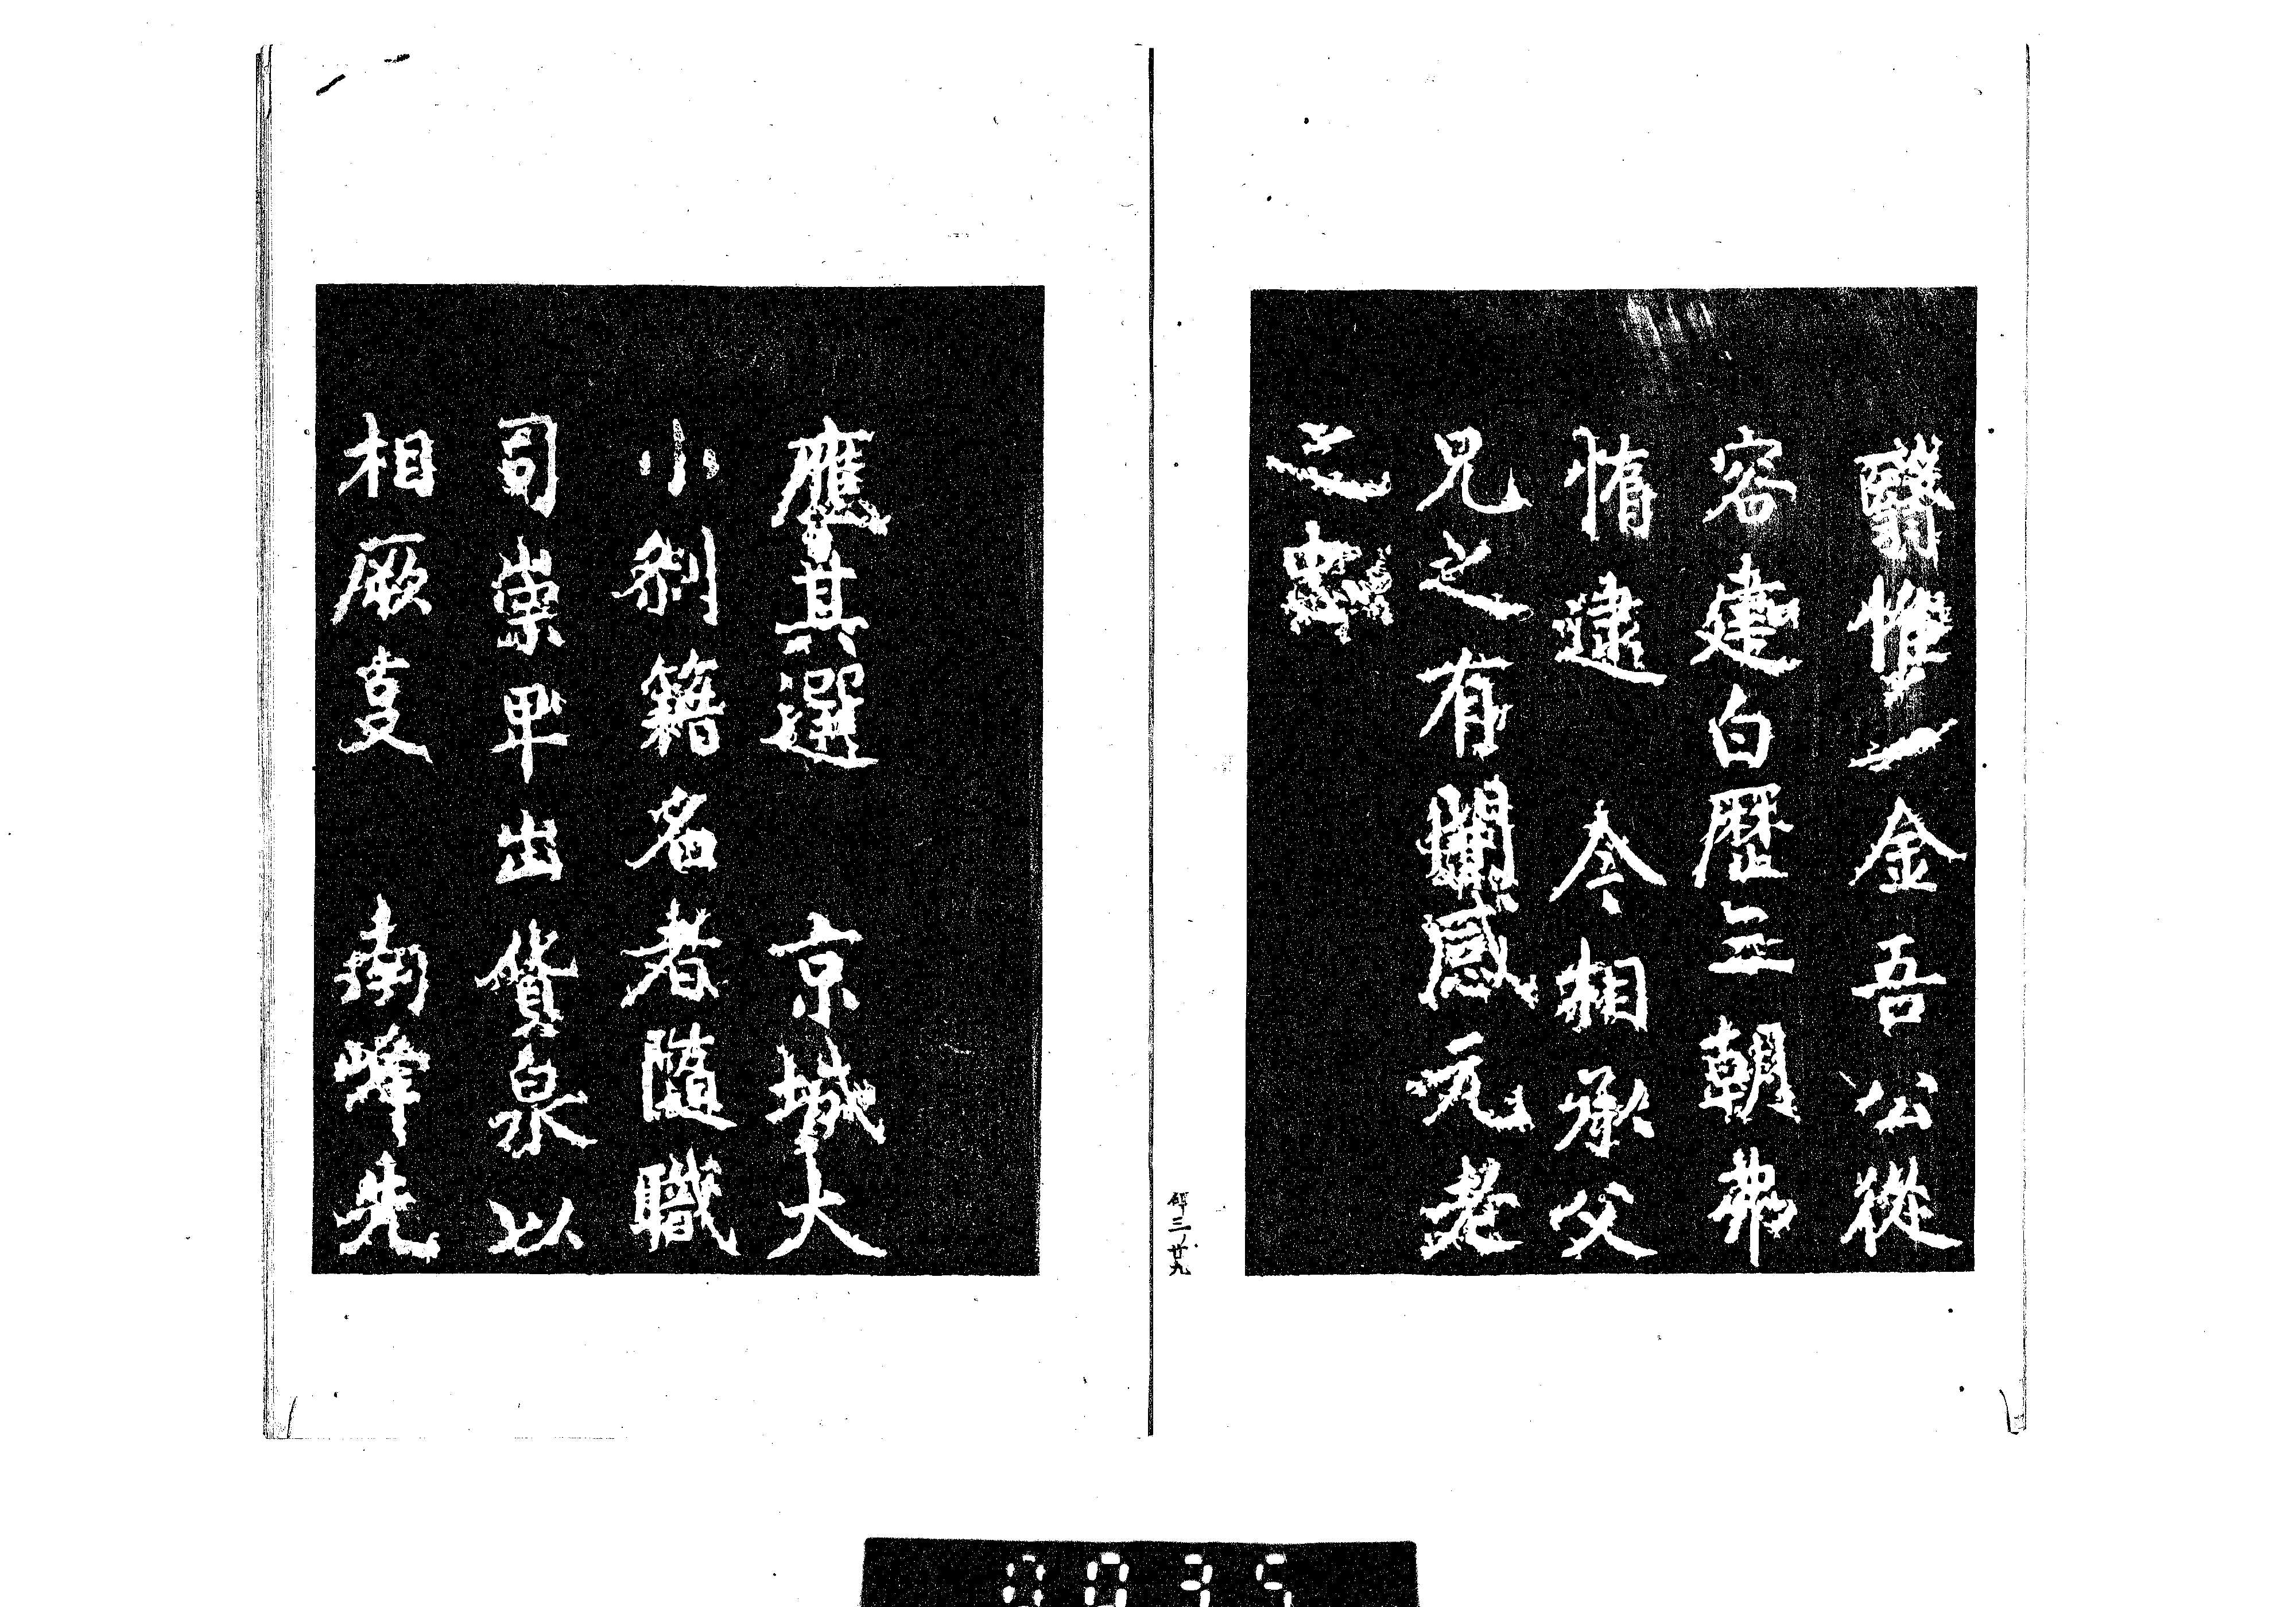 翳惟金吾公從
容建白歷三朝弗
惰逮 今相承父
兄之有闡感元老
之忠
應其選 京城大
小剎籍名者隨職
司崇卑出貨泉以
相厥 南峰先
三ノ廿九
0035